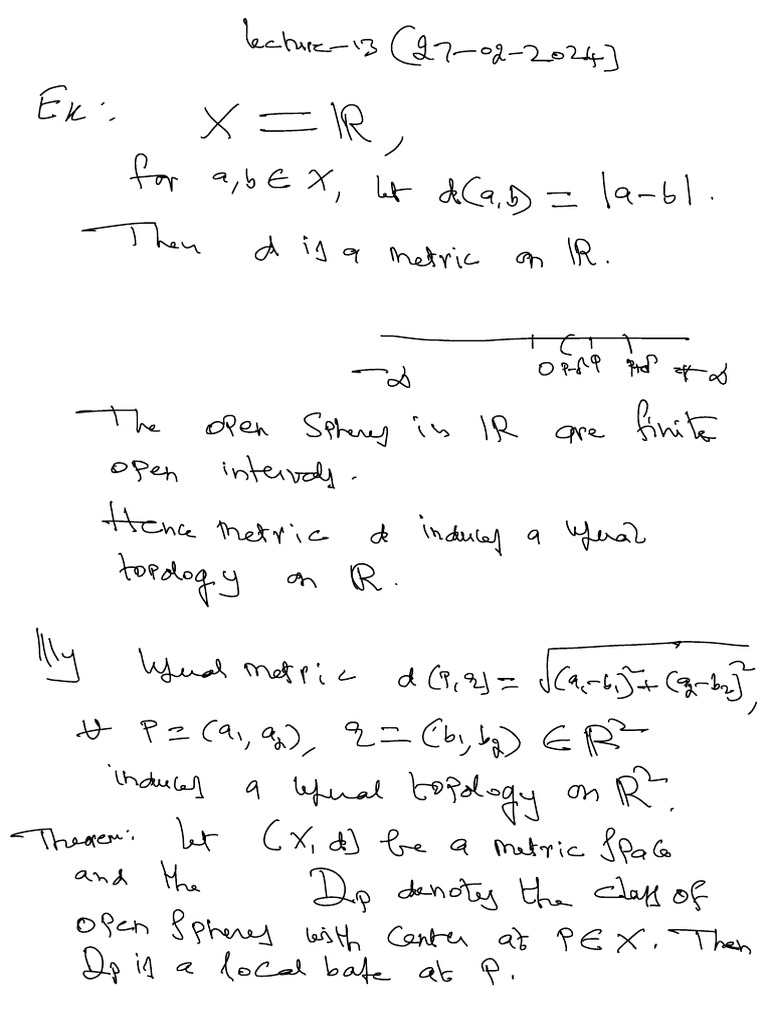 Lecture-13 (27-02-2024)
Ex:. X = ℝ,
for a,b ∈ X, let d(a,b) = |a-b|.
Then d is a metric on ℝ.
-∞ 0 p-δ p p+δ +∞
The open spheres in ℝ are finite
open intervals.
Hence metric d induces a usual
topology on ℝ.
|||ly usual metric d(p,q) = √((a₁-b₁)²+(a₂-b₂)²),
∀ p = (a₁, a₂), q = (b₁, b₂) ∈ ℝ²
induces a usual topology on ℝ².
Theorem: let (X, d) be a metric space
and the Dp denotes the class of
open spheres with center at p ∈ X. Then
Dp is a local base at p.